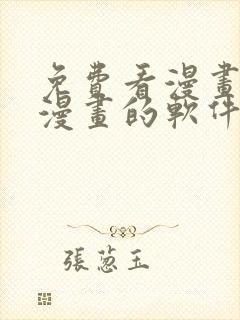 免費看漫畫
漫畫的軟件
張蔥玉